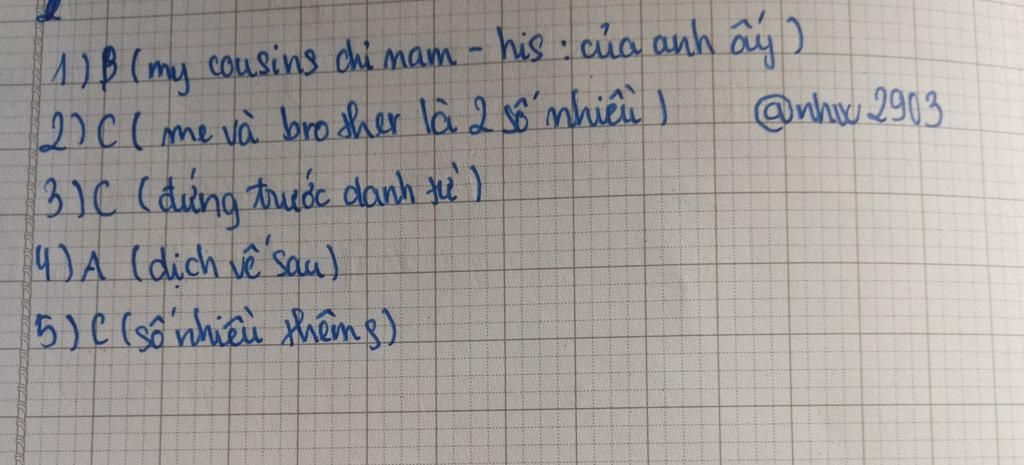 2
1) B (my cousins chỉ nam - his : của anh ấy)
2) C ( me và brother là 2 số nhiều) @nhw 2903
3) C (đứng trước danh từ)
4) A (dịch vế sau)
5) C (số nhiều thêm s)